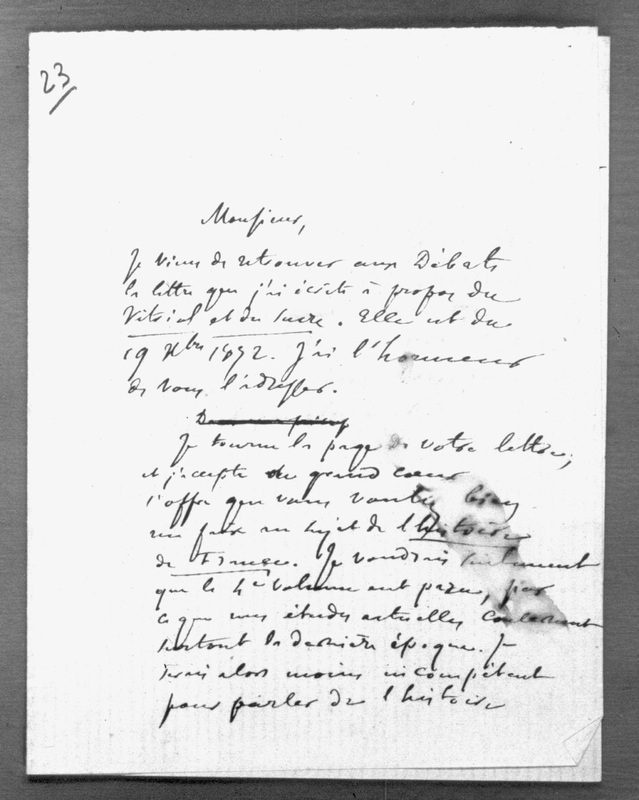 23
Monsieur,
Je viens de retrouver aux Débats
la lettre que j'ai écrite à propos du
Vitriol et du Sucre. Elle est du
19 Xbre 1892. J'ai l'honneur
de vous l'adresser.
Je tourne la page de votre lettre,
et j'accepte de grand cœur
l'offre que vous voulez bien
me faire au sujet de l'histoire
de France. Je voudrais seulement
que le 4e volume eut paru, car
ce que mes études actuelles concernent
surtout la dernière époque. Je
serais alors moins incompétent
pour parler de l'histoire